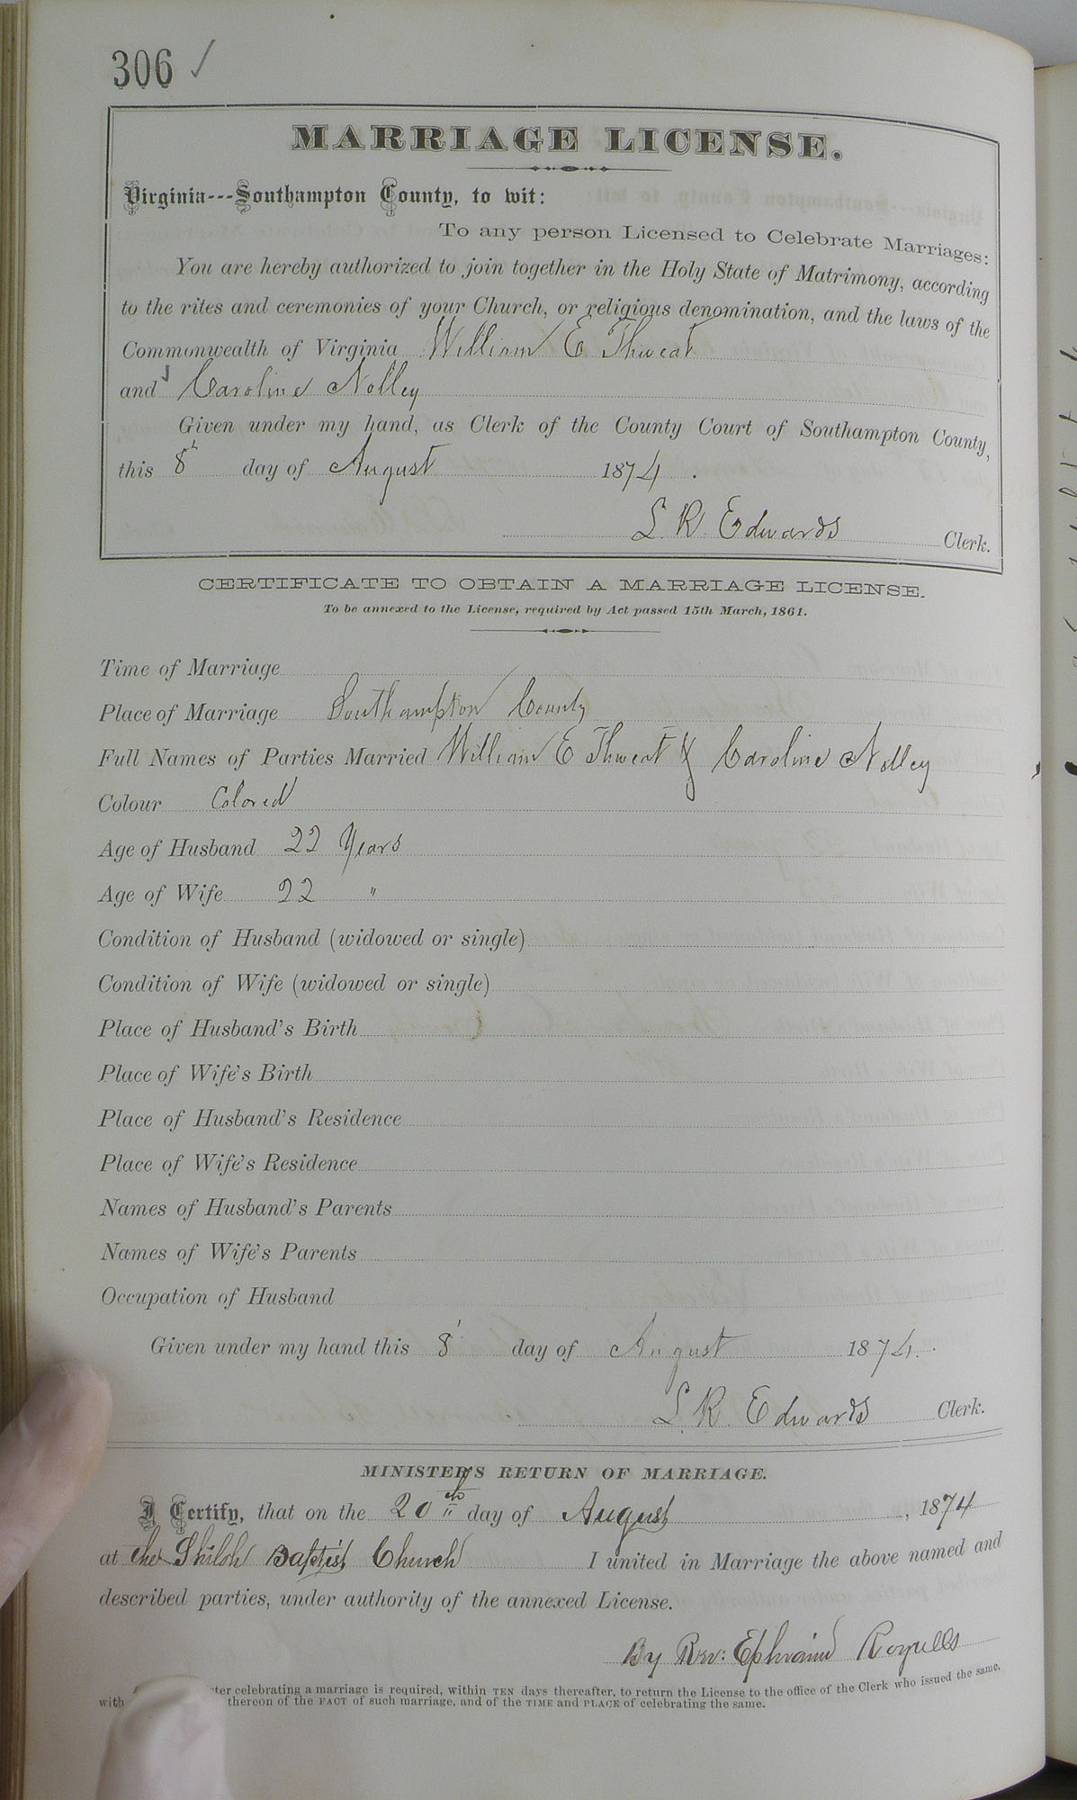 306 ✓
MARRIAGE LICENSE.
Virginia---Southampton County, to wit:
To any person Licensed to Celebrate Marriages:
You are hereby authorized to join together in the Holy State of Matrimony, according
to the rites and ceremonies of your Church, or religious denomination, and the laws of the
Commonwealth of Virginia William E Thweat
and Caroline Nolley
Given under my hand, as Clerk of the County Court of Southampton County,
this 8 day of August 1874.
L. R. Edwards Clerk.
CERTIFICATE TO OBTAIN A MARRIAGE LICENSE.
To be annexed to the License, required by Act passed 15th March, 1861.
Time of Marriage
Place of Marriage Southampton County
Full Names of Parties Married William E Thweat & Caroline Nolley
Colour Colored
Age of Husband 22 Years
Age of Wife 22 "
Condition of Husband (widowed or single)
Condition of Wife (widowed or single)
Place of Husband's Birth
Place of Wife's Birth
Place of Husband's Residence
Place of Wife's Residence
Names of Husband's Parents
Names of Wife's Parents
Occupation of Husband
Given under my hand this 8 day of August 1874.
L. R. Edwards Clerk.
MINISTER'S RETURN OF MARRIAGE.
I Certify, that on the 20th day of August, 1874
at the Shiloh Baptist Church I united in Marriage the above named and
described parties, under authority of the annexed License.
By Rev: Ephraim
celebrating a marriage is required, within TEN days thereafter, to return the License to the office of the Clerk who issued the same,
with thereon of the FACT of such marriage, and of the TIME and PLACE of celebrating the same.